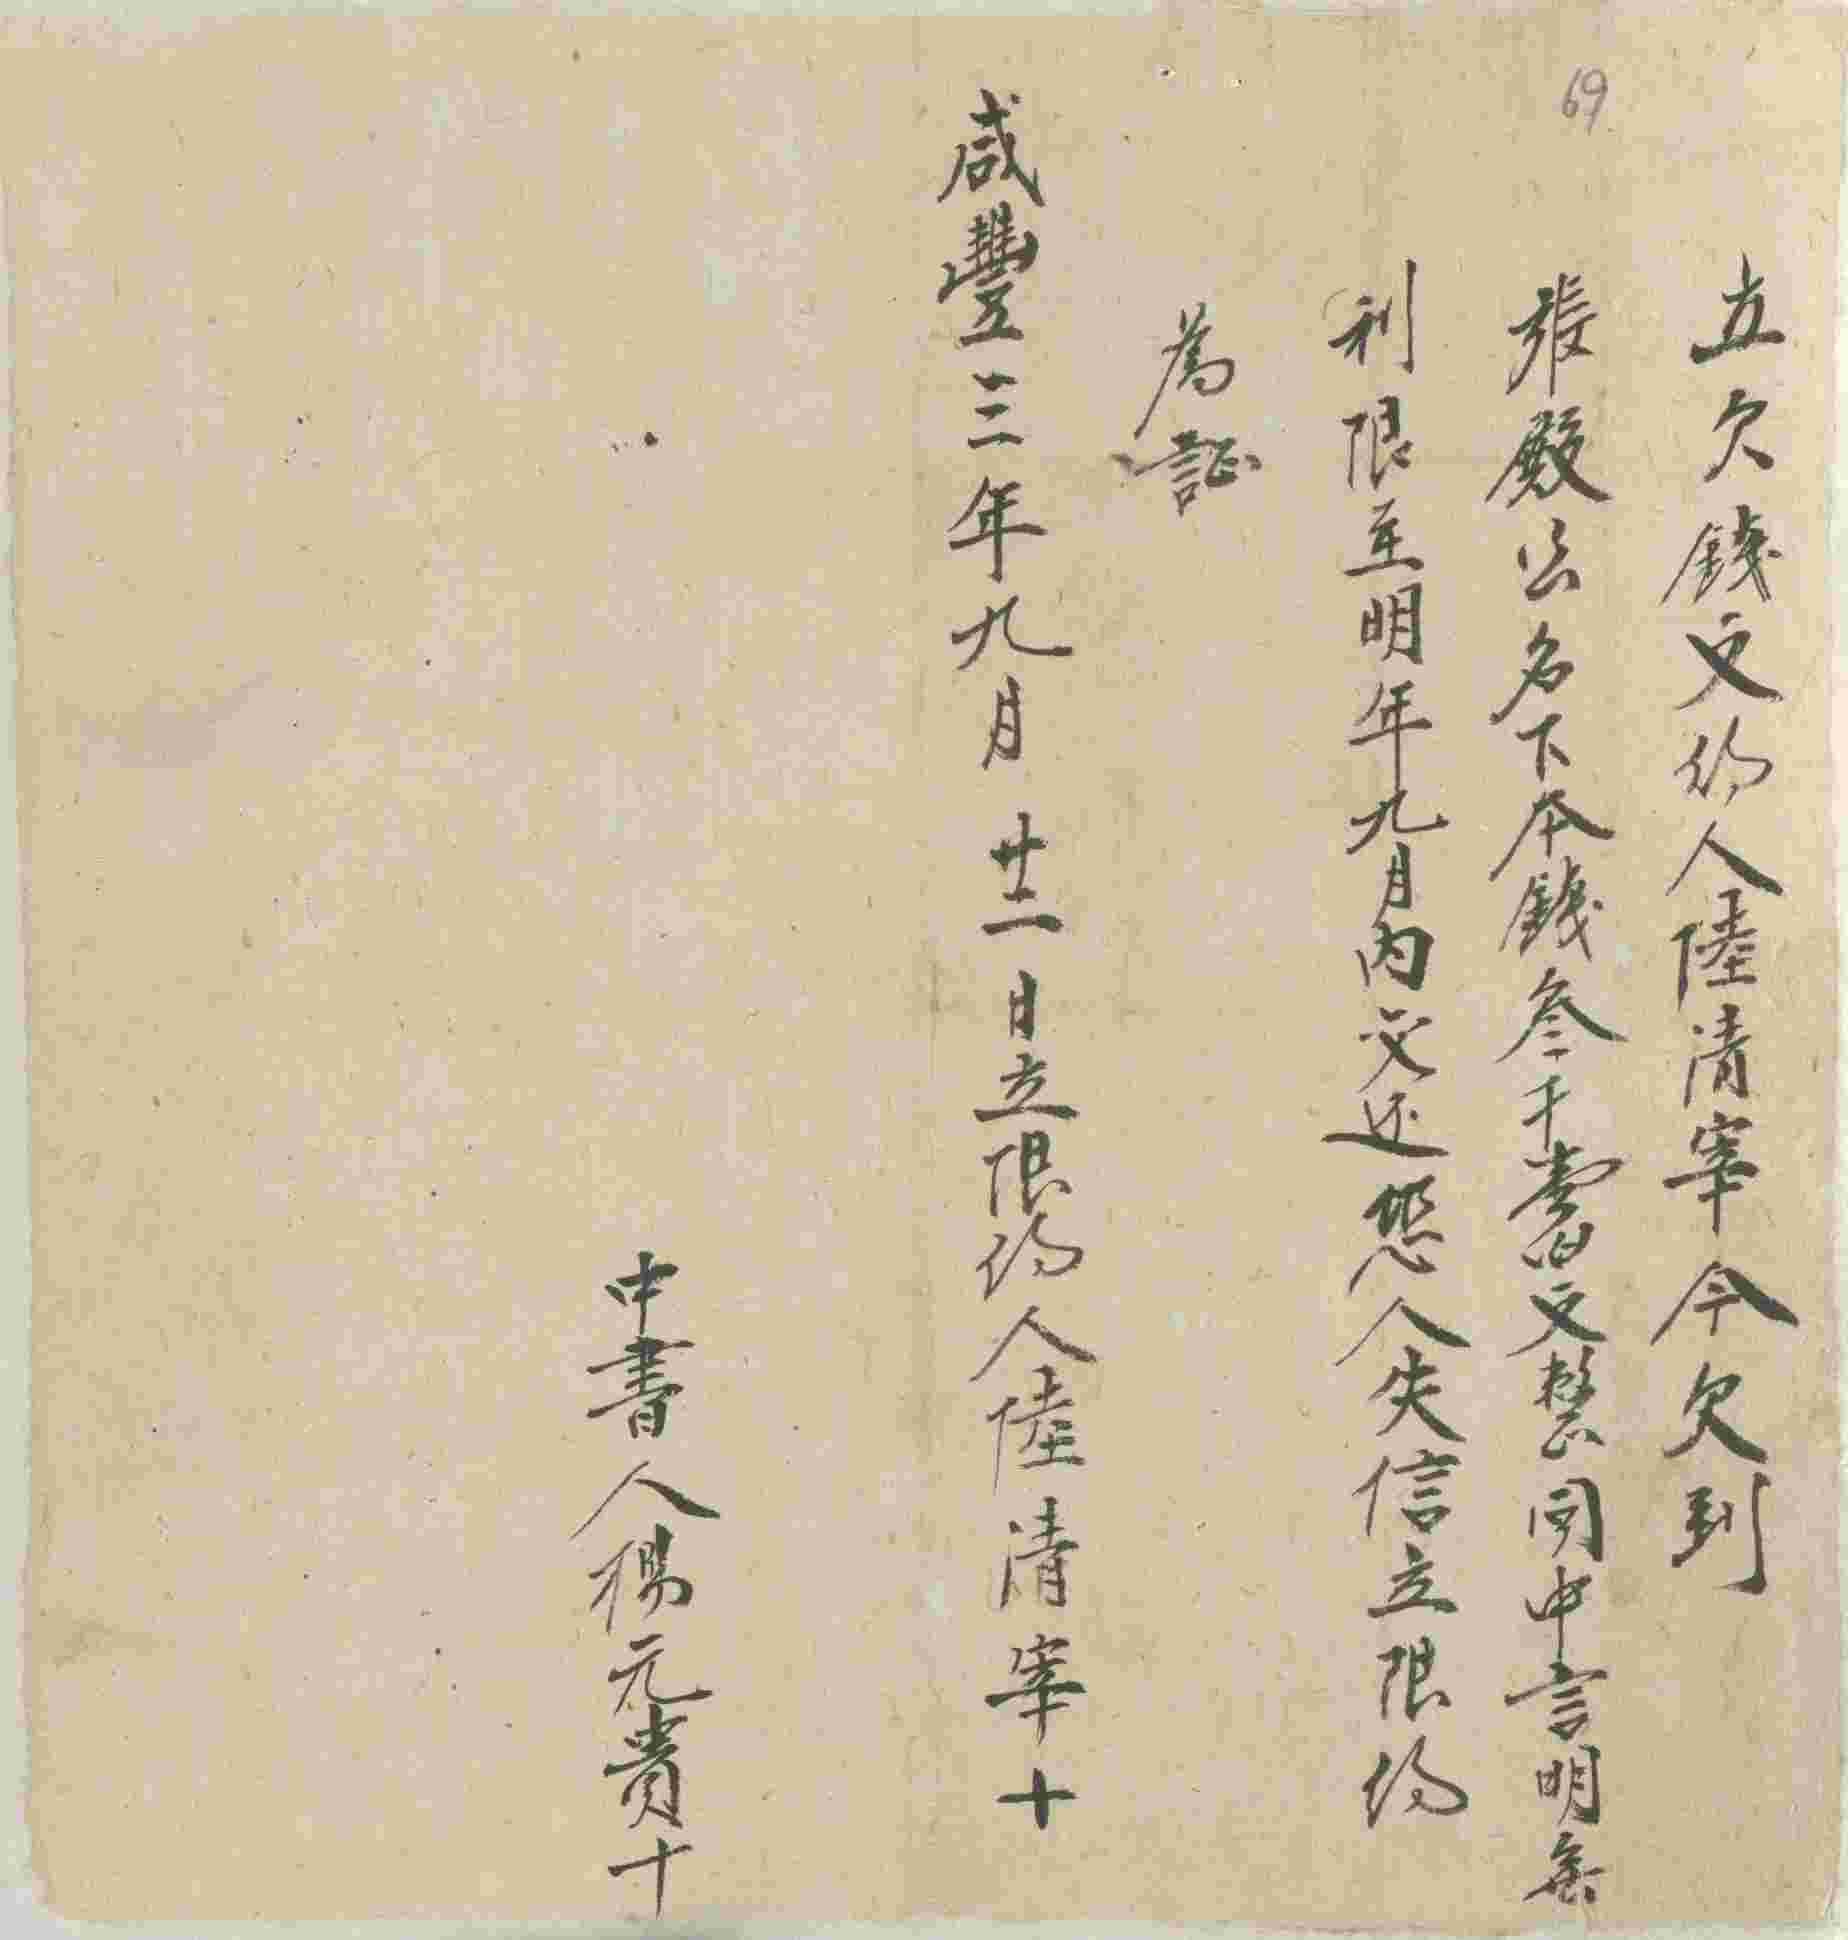 69
立欠錢文約人陸清宰今欠到
張殿公名下本錢叁千壹百文整同中言明無
利限至明年九月内交还恐人失信立限約
為証
咸豐三年九月廿二日立限約人陸清宰十
中書人楊元貴十